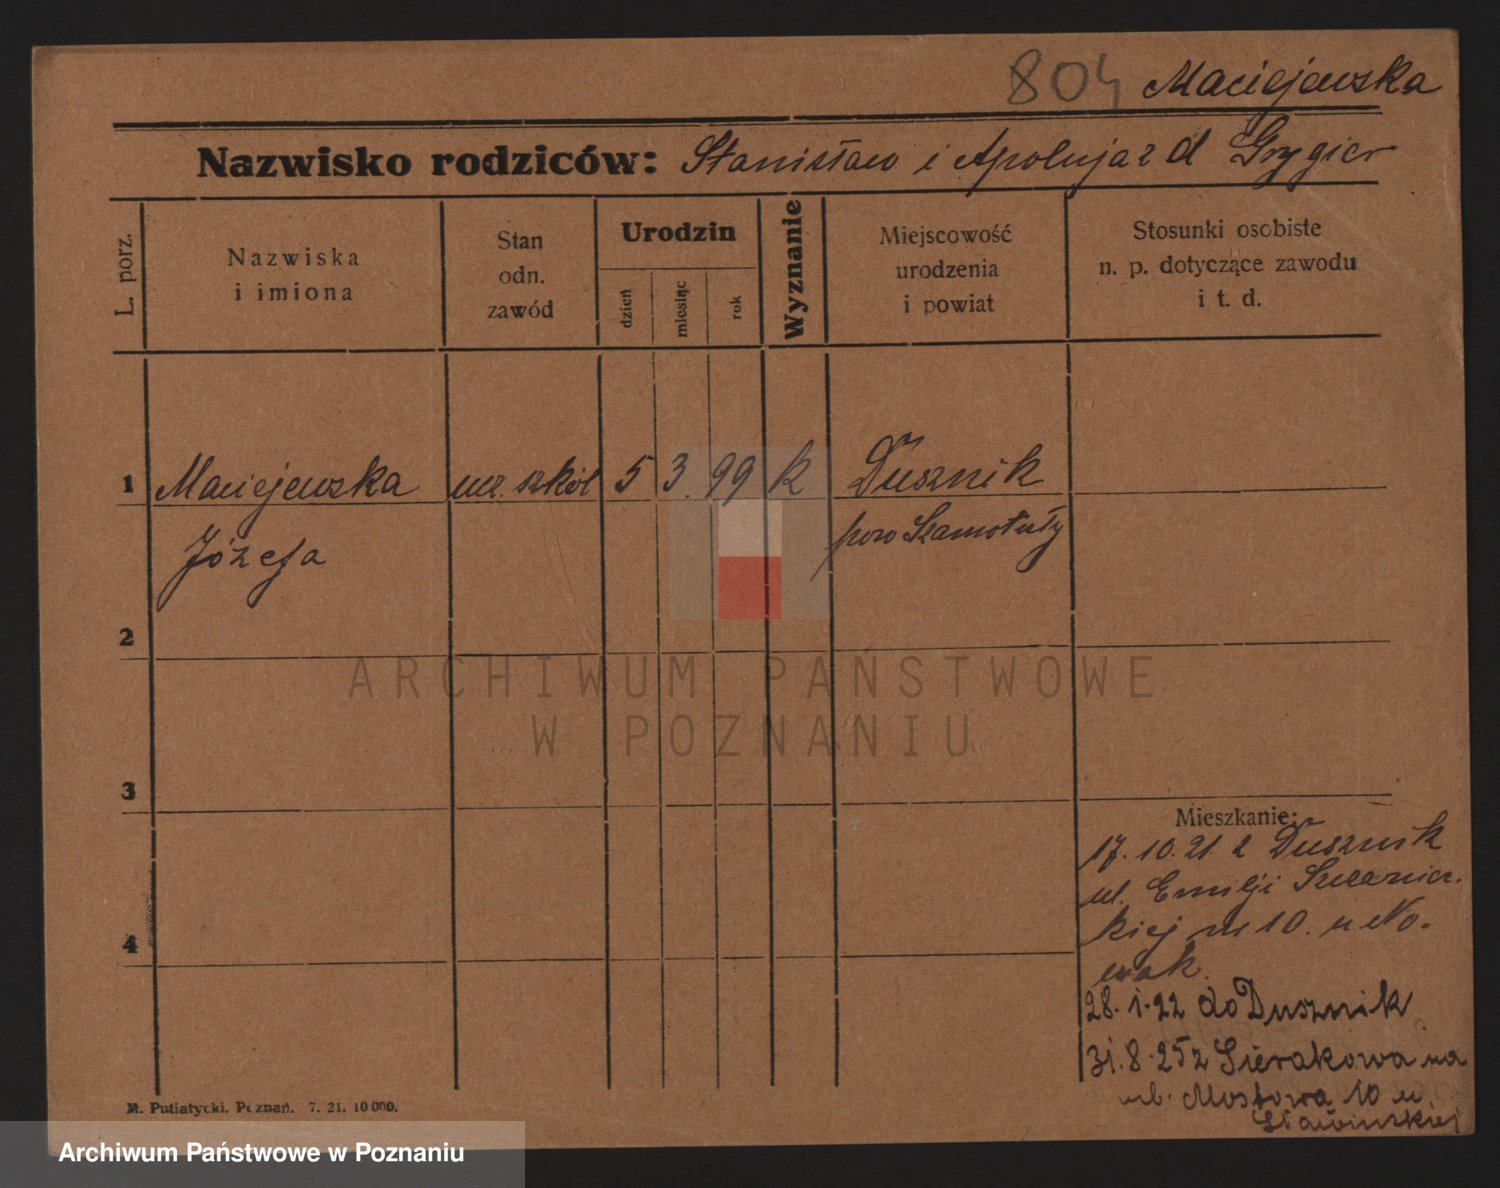 804 Maciejewska
Nazwisko rodziców: Stanisław i Apolonja z d Grygier
L. porz.
Nazwiska
i imiona
Stan
odn.
zawód
Urodzin
dzień
miesiąc
rok
Wyznanie
Miejscowość
urodzenia
i powiat
Stosunki osobiste
n. p. dotyczące zawodu
i t. d.
1 Maciejewska ucz. szkół 5 3. 99 k Dusznik
Józefa pow Szamotuły
2
3
4
Mieszkanie:
17. 10. 21 z Dusznik
ul. Emilji Sczaniec.
kiej nr 10. u No.
wak.
28. 1. 22 do Dusznik
31. 8. 25 z Sierakowa na
ul. Mostowa 10 u
ARCHIWUM PAŃSTWOWE
W POZNANIU
M. Putiatycki. Poznań. 7. 21. 10 000.
Archiwum Państwowe w Poznaniu